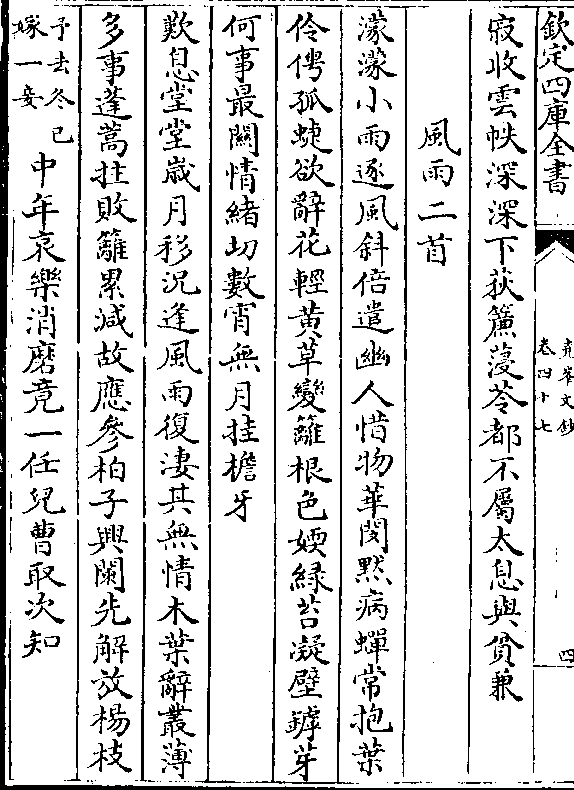 欽定四庫全書
堯峯文鈔
卷四十七
四
寂收雲帙深深下荻簾薓苓都不屬太息與貧兼
風雨二首
濛濛小雨逐風斜倍遣幽人惜物華閔默病蟬常抱葉
伶俜孤蜨欲辭花輕黃草變籬根色嫰緑苔凝壁罅芽
何事最闗情緒切數宵無月挂檐牙
歎息堂堂嵗月移況逢風雨復淒其無情木葉辭叢薄
多事蓬蒿拄敗籬累減故應參柏子興闌先解放楊枝
予去冬已
嫁一妾
中年哀樂消磨竟一任兒曹取次知